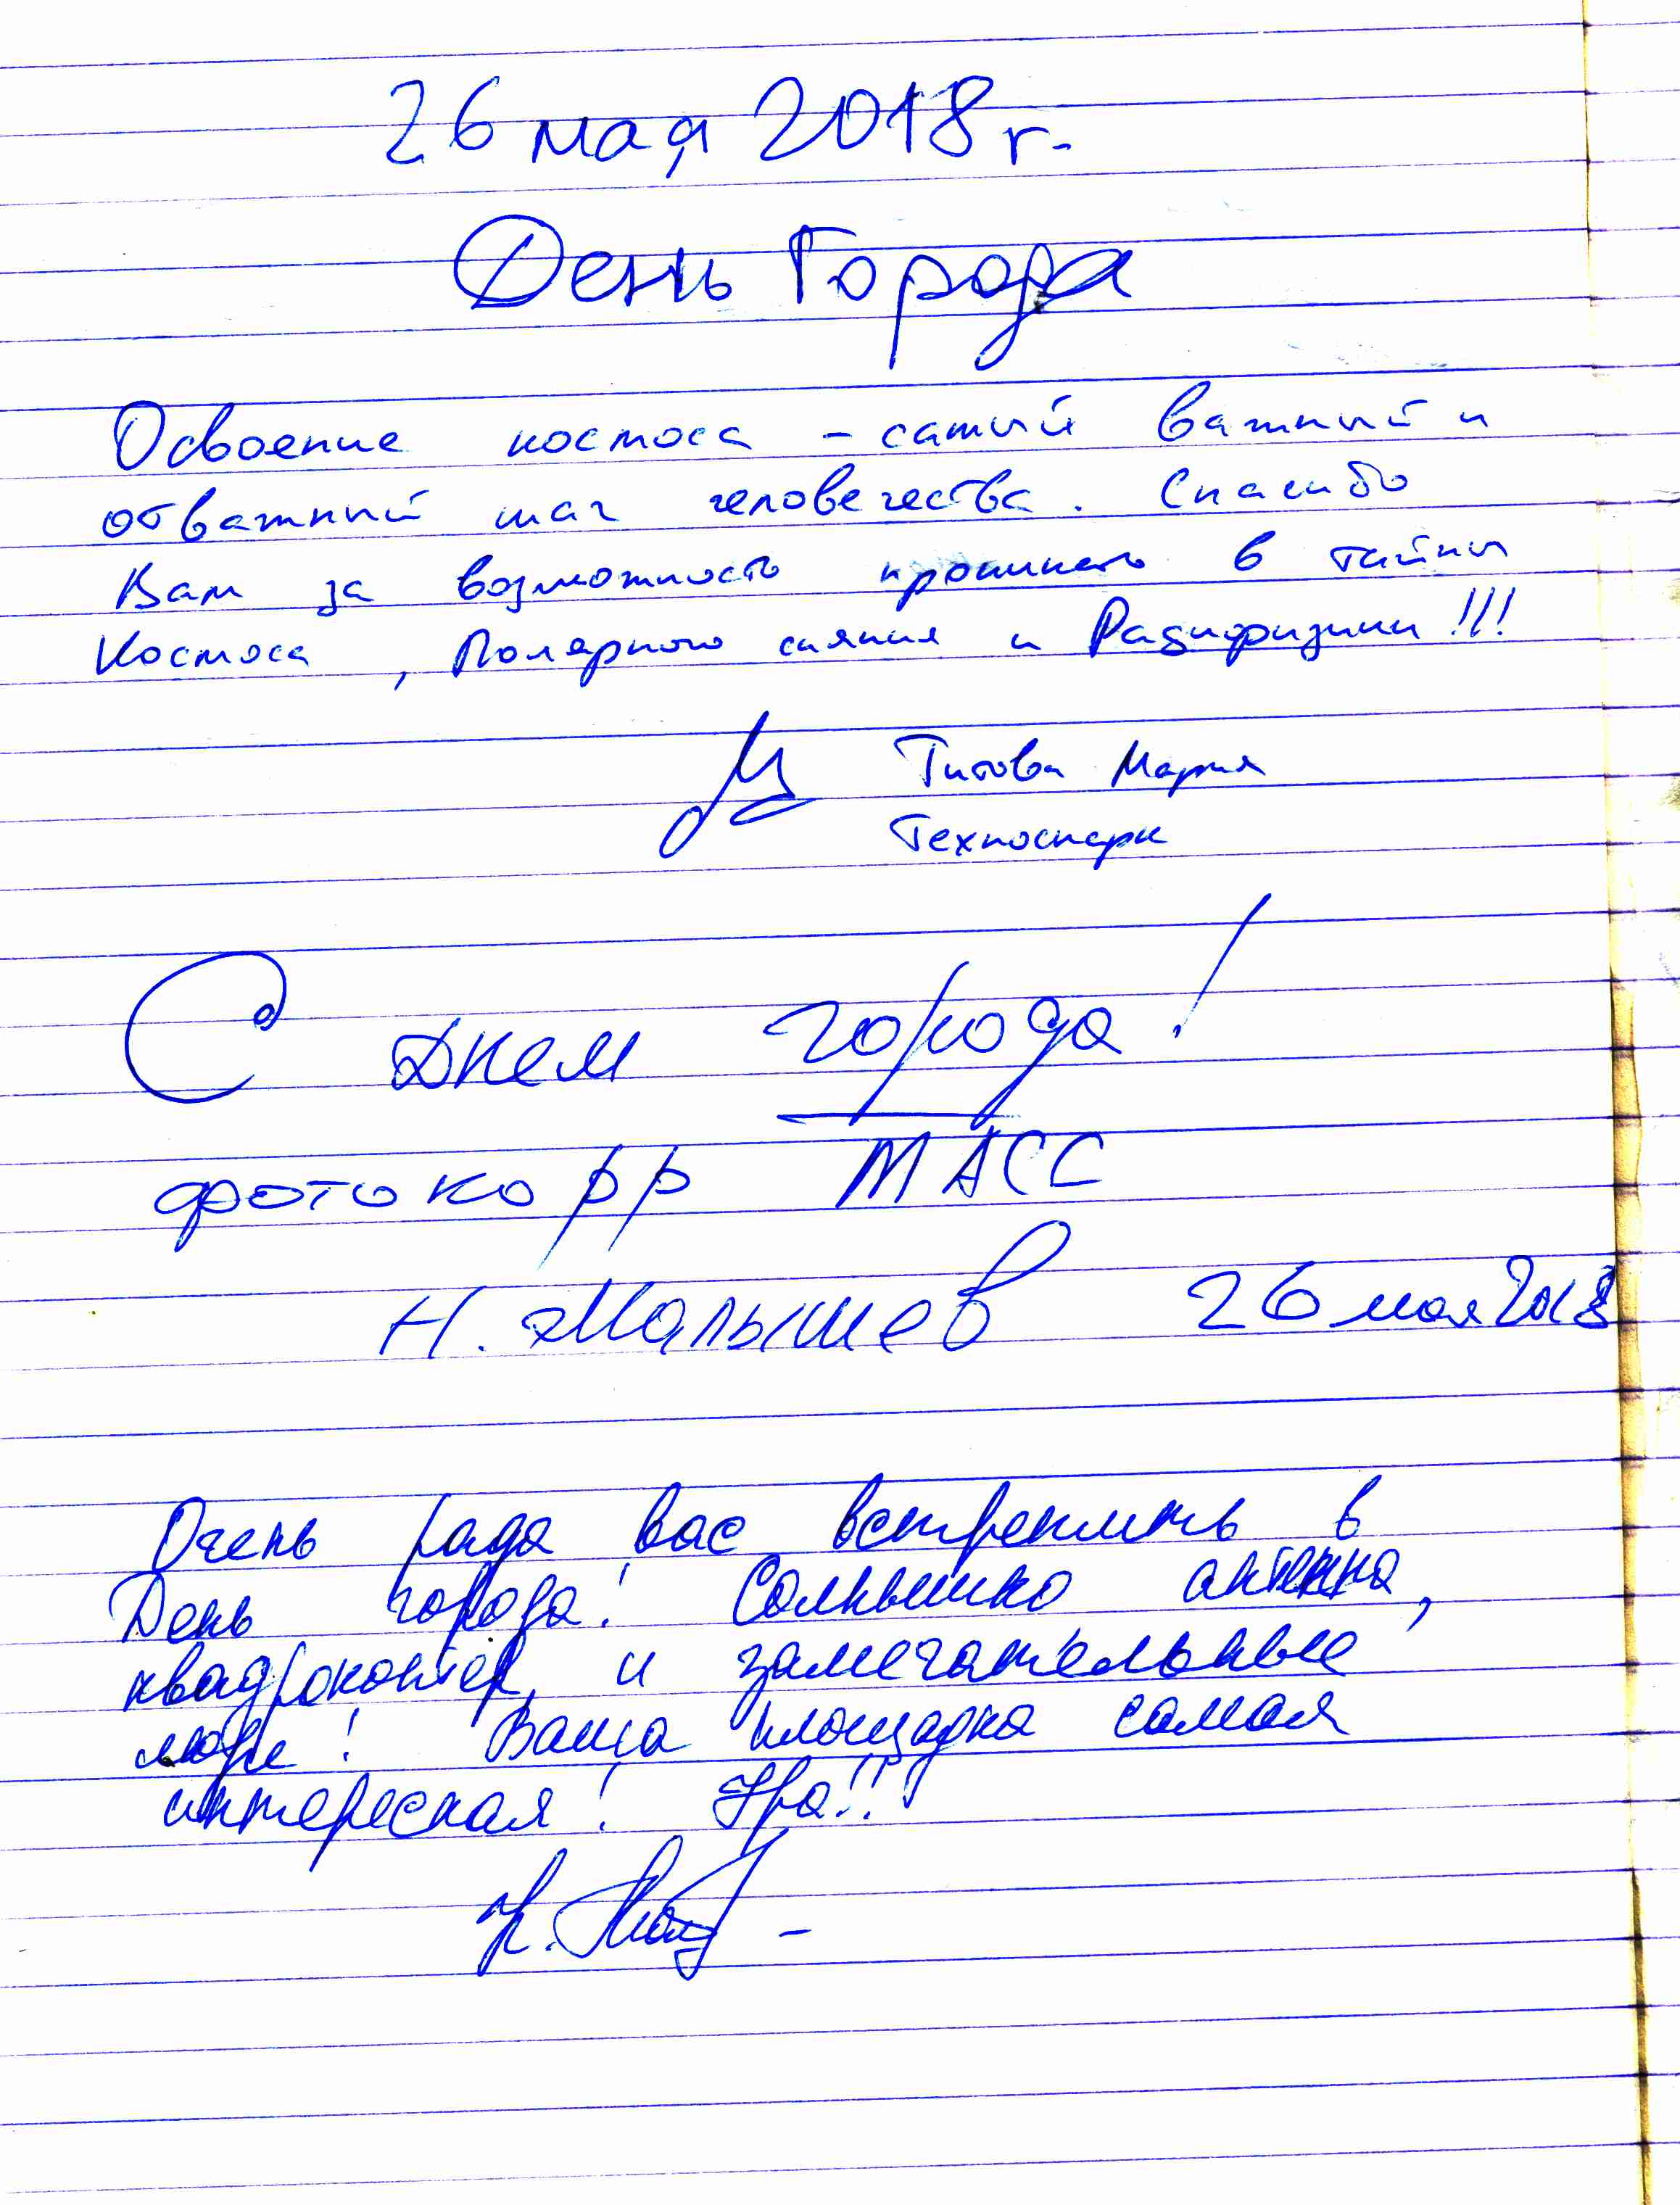 26 мая 2018 г.
День Города
Освоение космоса – самый важный и
отважный шаг человечества. Спасибо
Вам за возможность проникнуть в тайны
Космоса, Полярного сияния и Радиофизики!!!
Титова Мария
Техноспарк
С Днем города!
фотокорр ТАСС
Н. Малышев 26 мая 2018
Очень рада вас встретить в
День города! Солнышко антенна,
квадрокоптер, и замечательные
люди! Ваша площадка самая
интересная! Ура!!